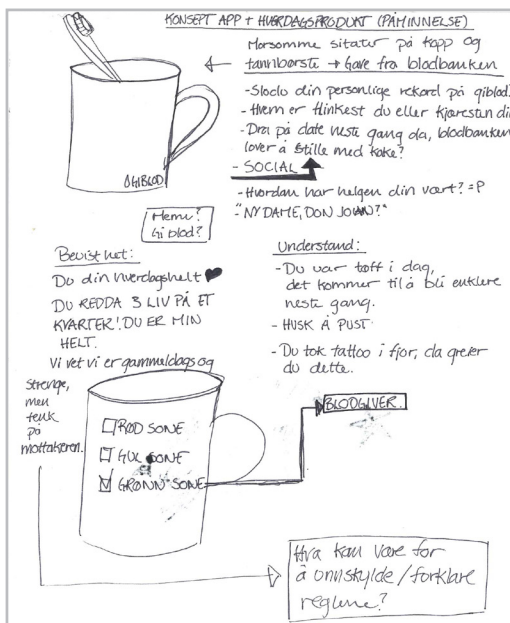 KONSEPT APP + HVERDAGSPRODUKT (PÅMINNELSE)
Morsomme sitater på kopp og
tannbørste → Gave fra blodbanken
- Slo du din personlige rekord på giblod?
- Hvem er flinkest du eller kjæresten din
- Dra på date neste gang da, blodbanken
lover å stille med kake?
- SOCIAL
- Hvordan har helgen din vært? =P
- "NY DAME, DON JOHAN?"
GIBLOD
Hemu?
Gi blod?
Bevisthet:
Du din hverdagshelt ♥
DU REDDA 3 LIV PÅ ET
KVARTER! DU ER MIN
HELT.
Vi vet vi er gammeldags og
strenge,
men
tenk
på
mottakeren.
Understand:
- Du var tøff i dag,
det kommer til å bli enklere
neste gang.
- HUSK Å PUST
- Du tok tattoo i fjor, da greier
du dette.
RØD SONE
GUL SONE
GRØNN SONE
BLODGIVER.
Hva kan være for
å unnskylde/forklare
reglene?